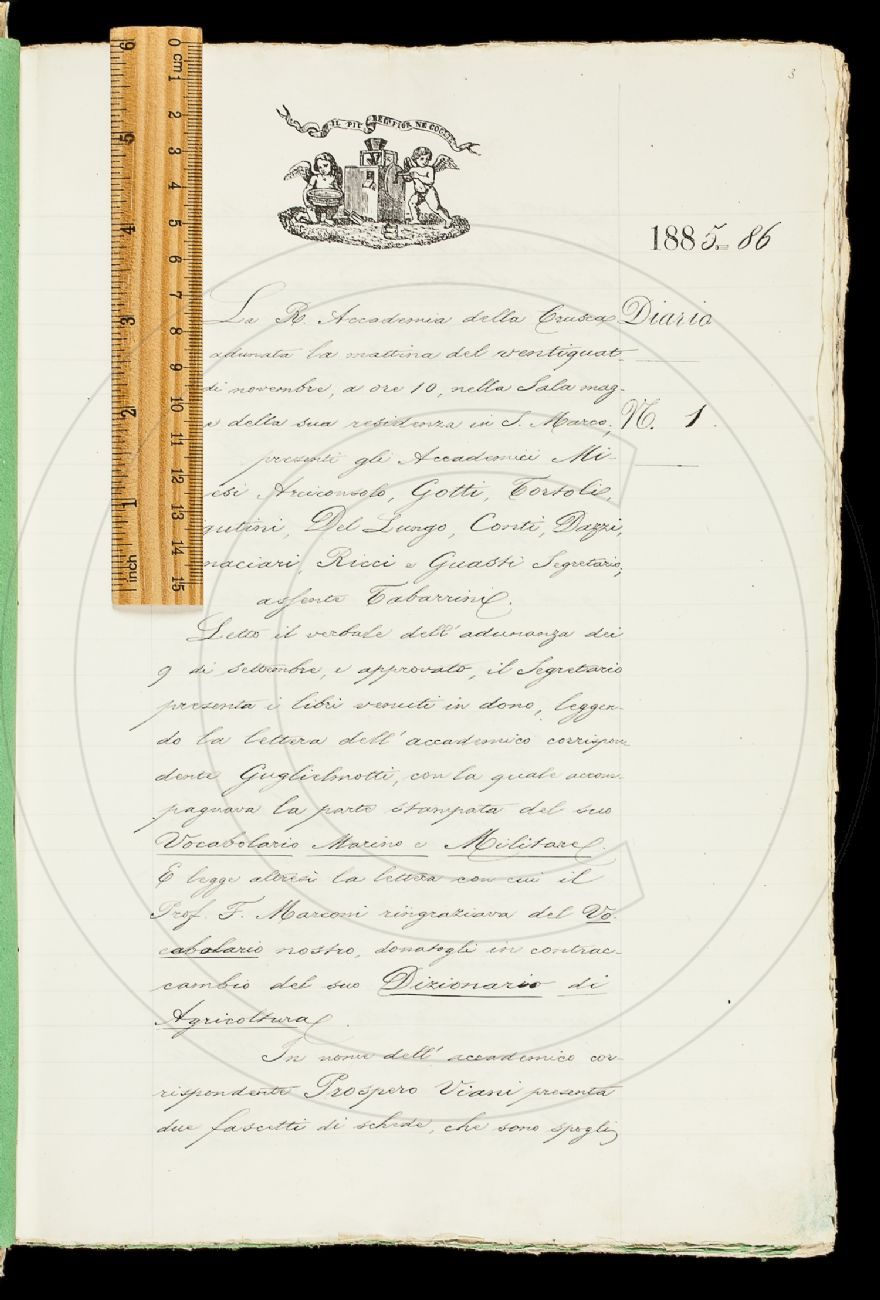 3
IL PIÙ BEL FIOR NE COGLIE
1885=86
La R. Accademia della Crusca
Diario
adunata la mattina del ventiquat-
di novembre, a ore 10, nella Sala mag-
e della sua residenza in S. Marco;
N. 1.
presenti gli Accademici Mi-
esi Arciconsolo, Gotti, Tortoli,
gutini, Del Lungo, Conti, Dazzi,
naciari, Ricci e Guasti Segretario;
assente Tabarrini.
Letto il verbale dell'adunanza dei
9 di settembre, e approvato, il Segretario
presenta i libri venuti in dono, leggen-
do la lettera dell'accademico corrispon-
dente Guglielmotti, con la quale accom-
pagnava la parte stampata del suo
Vocabolario Marino e Militare.
E legge altresì la lettera con cui il
Prof. F. Marconi ringraziava del Vo-
cabolario nostro, donatogli in contrac-
cambio del suo Dizionario di
Agricoltura.
In nome dell'accademico cor-
rispondente Prospero Viani presenta
due fascetti di schede, che sono spogli
0 cm 1 2 3 4 5 6 7 8 9 10 11 12 13 14 15
inch 1 2 3 4 5 6